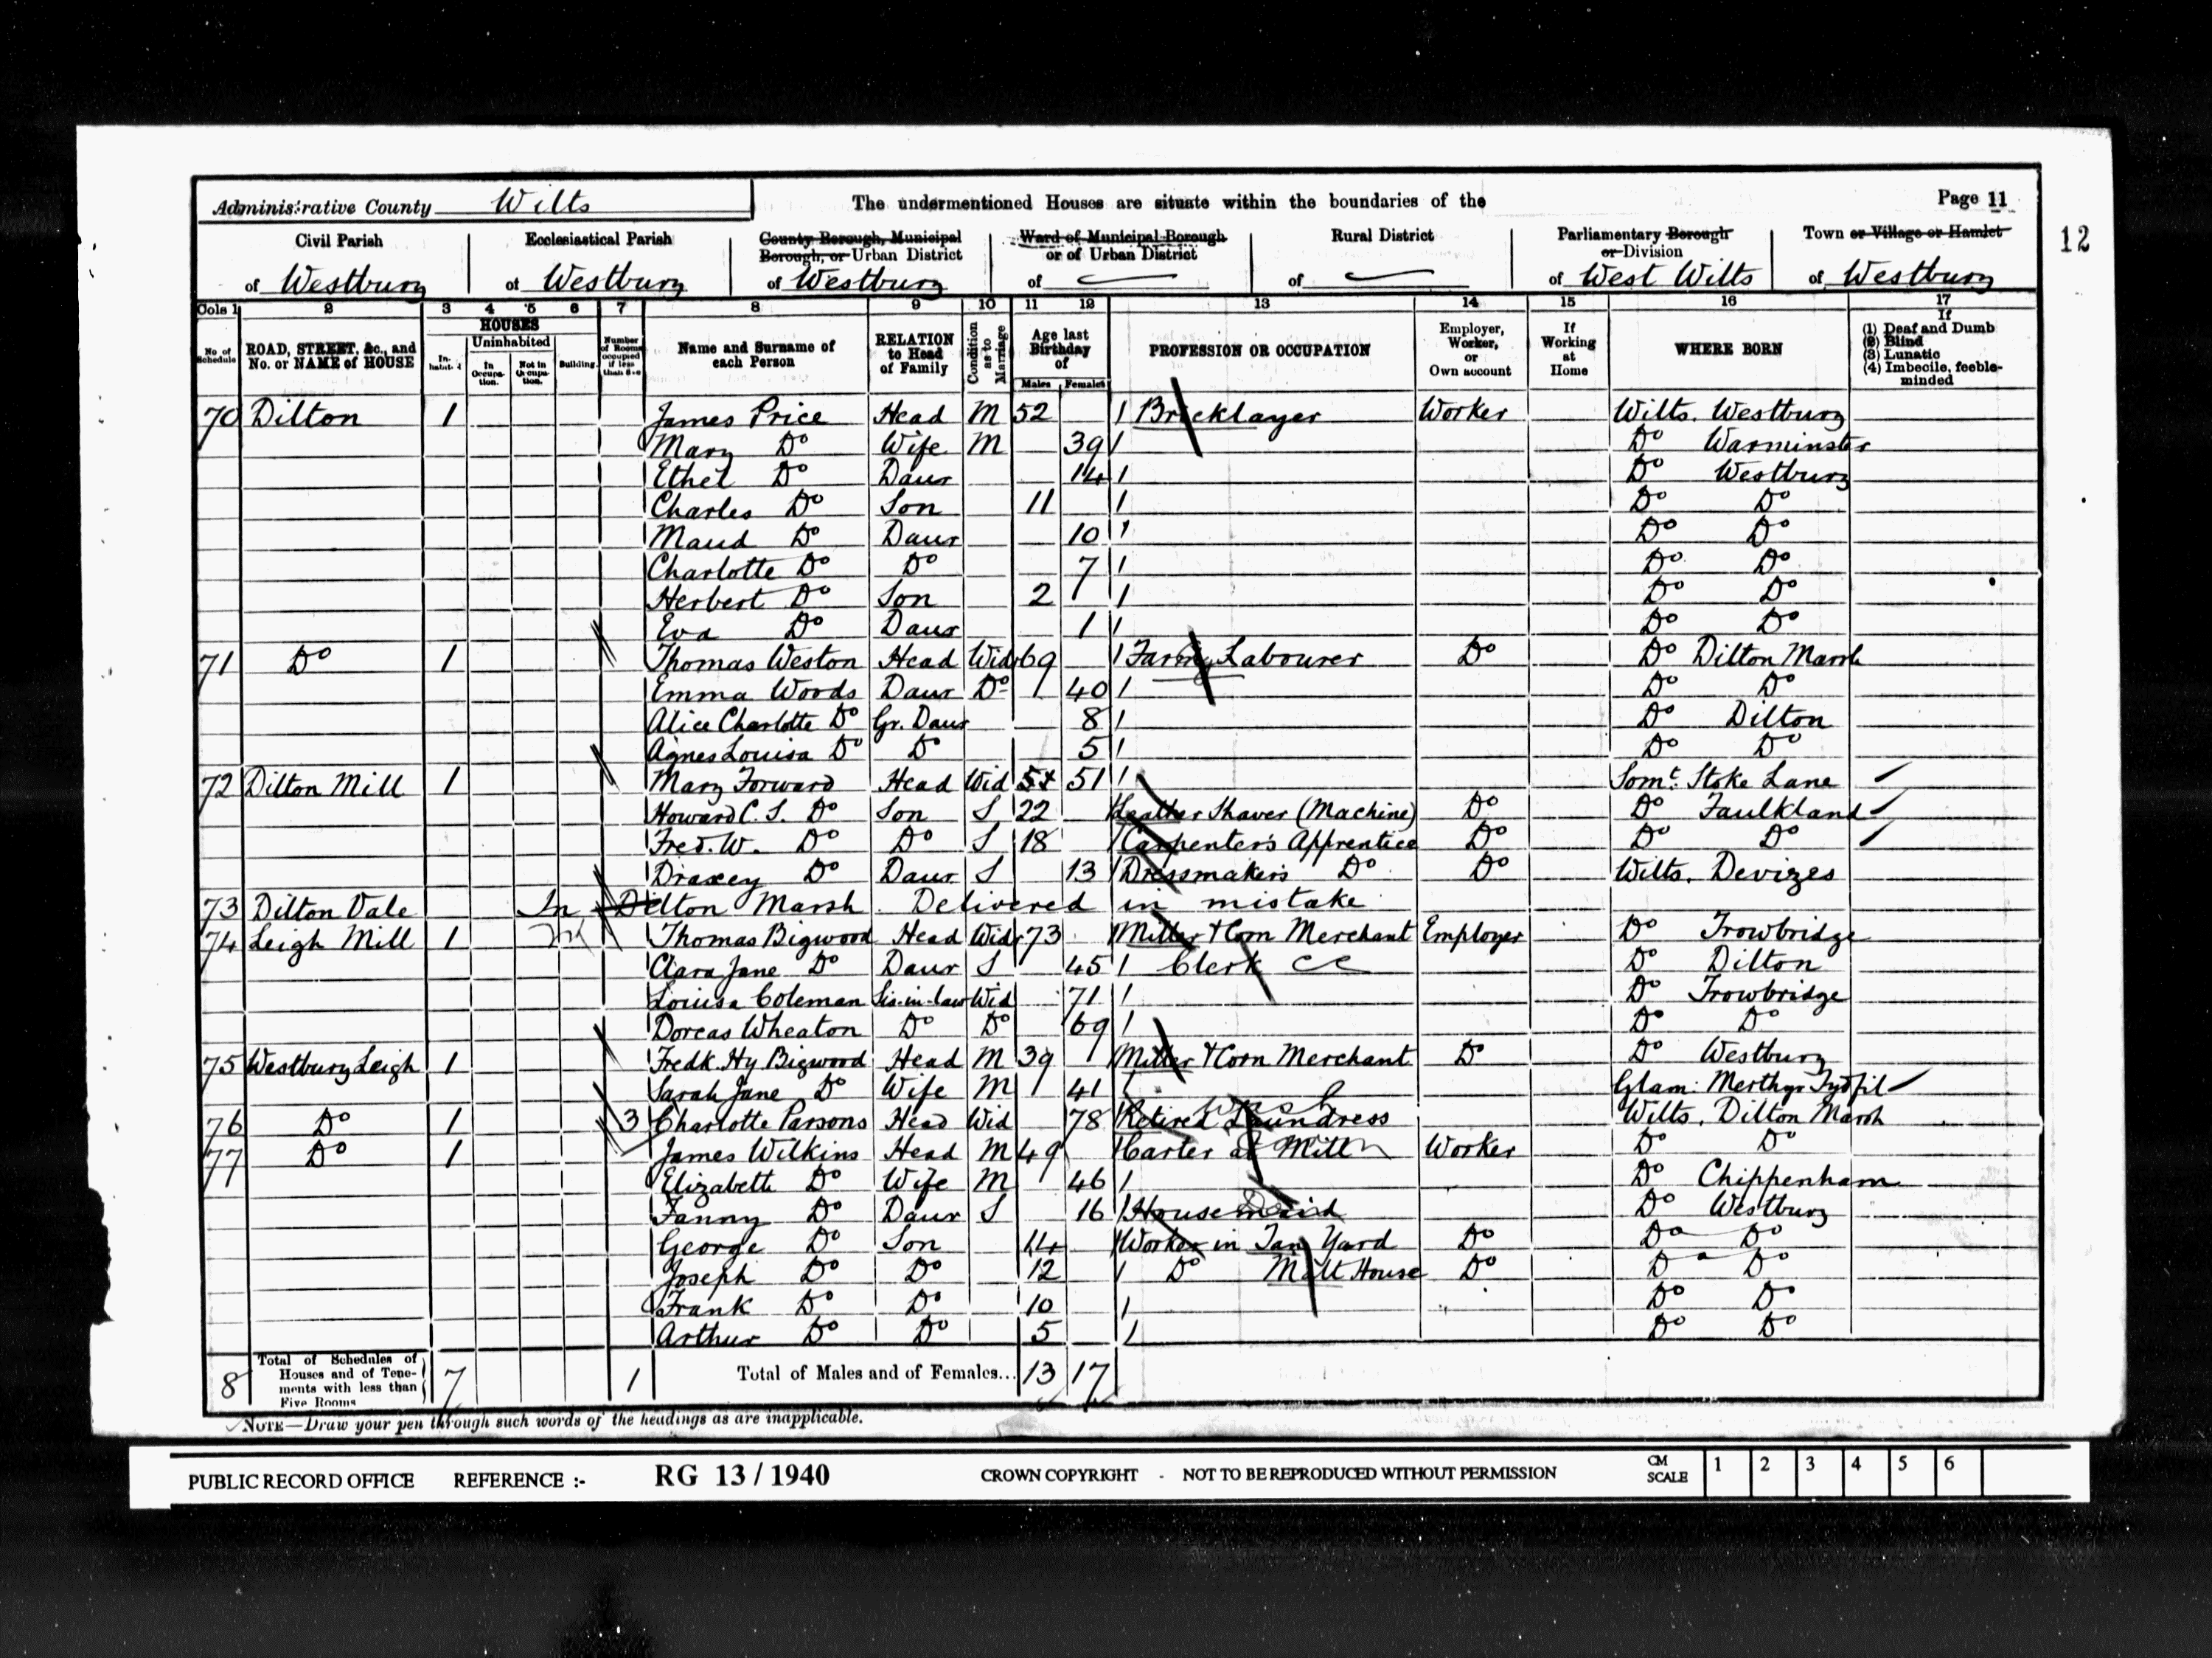 Administrative County Wilts The undermentioned Houses are situate within the boundaries of the Page 11
12
Civil Parish of Westbury
Ecclesiastical Parish of Westbury
County Borough, Municipal Borough, or Urban District of Westbury
Ward of Municipal Borough or of Urban District of —
Rural District of —
Parliamentary Borough or Division of West Wilts
Town or Village or Hamlet of Westbury
Cols 1 2 3 4 5 6 7 8 9 10 11 12 13 14 15 16 17
No of Schedule
ROAD, STREET, &c., and No. or NAME of HOUSE
HOUSES
Inhabit.
Uninhabited
In Occupation.
Not in Occupation.
Building
Number of Rooms occupied if less than five
Name and Surname of each Person
RELATION to Head of Family
Condition as to Marriage
Age last Birthday of
Males Females
PROFESSION OR OCCUPATION
Employer, Worker, or Own account
If Working at Home
WHERE BORN
If
(1) Deaf and Dumb
(2) Blind
(3) Lunatic
(4) Imbecile, feeble-minded
70 Dilton 1 James Price Head M 52 Bricklayer Worker Wilts. Westbury
Mary Do Wife M 39 Do Warminster
Ethel Do Daur 14 Do Westbury
Charles Do Son 11 Do Do
Maud Do Daur 10 Do Do
Charlotte Do Do 7 Do Do
Herbert Do Son 2 Do Do
Eva Do Daur 1 Do Do
71 Do 1 Thomas Weston Head Widr 69 Farm Labourer Do Do Dilton Marsh
Emma Woods Daur Do 40 Do Do
Alice Charlotte Do Gr. Daur 8 Do Dilton
Agnes Louisa Do Do 5 Do Do
72 Dilton Mill 1 Mary Forward Head Wid 51 Somt. Stoke Lane
Howard C. S. Do Son S 22 Leather Shaver (Machine) Do Do Faulkland
Fred. W. Do Do S 18 Carpenter's Apprentice Do Do Do
Draxey Do Daur S 13 Dressmaker's Do Do Wilts. Devizes
73 Dilton Vale In Dilton Marsh Delivered in mistake
74 Leigh Mill 1 Thomas Bigwood Head Widr 73 Miller & Corn Merchant Employer Do Trowbridge
Clara Jane Do Daur S 45 Clerk CC Do Dilton
Louisa Coleman Sis-in-law Wid 71 Do Trowbridge
Dorcas Wheaton Do Do 69 Do Do
75 Westbury Leigh 1 Fredk. Hy Bigwood Head M 39 Miller & Corn Merchant Do Do Westbury
Sarah Jane Do Wife M 41 Glam: Merthyr Tydfil
76 Do 1 3 Charlotte Parsons Head Wid 78 Retired Laundress Wilts. Dilton Marsh
77 Do 1 James Wilkins Head M 49 Carter at Mill Worker Do Do
Elizabeth Do Wife M 46 Do Chippenham
Fanny Do Daur S 16 Housemaid Do Westbury
George Do Son 14 Worker in Tan Yard Do Do Do
Joseph Do Do 12 Do Malt House Do Do Do
Frank Do Do 10 Do Do
Arthur Do Do 5 Do Do
8 Total of Schedules of Houses and of Tenements with less than Five Rooms 7 1 Total of Males and of Females... 13 17
NOTE—Draw your pen through such words of the headings as are inapplicable.
PUBLIC RECORD OFFICE REFERENCE :- RG 13 / 1940 CROWN COPYRIGHT - NOT TO BE REPRODUCED WITHOUT PERMISSION CM SCALE 1 2 3 4 5 6